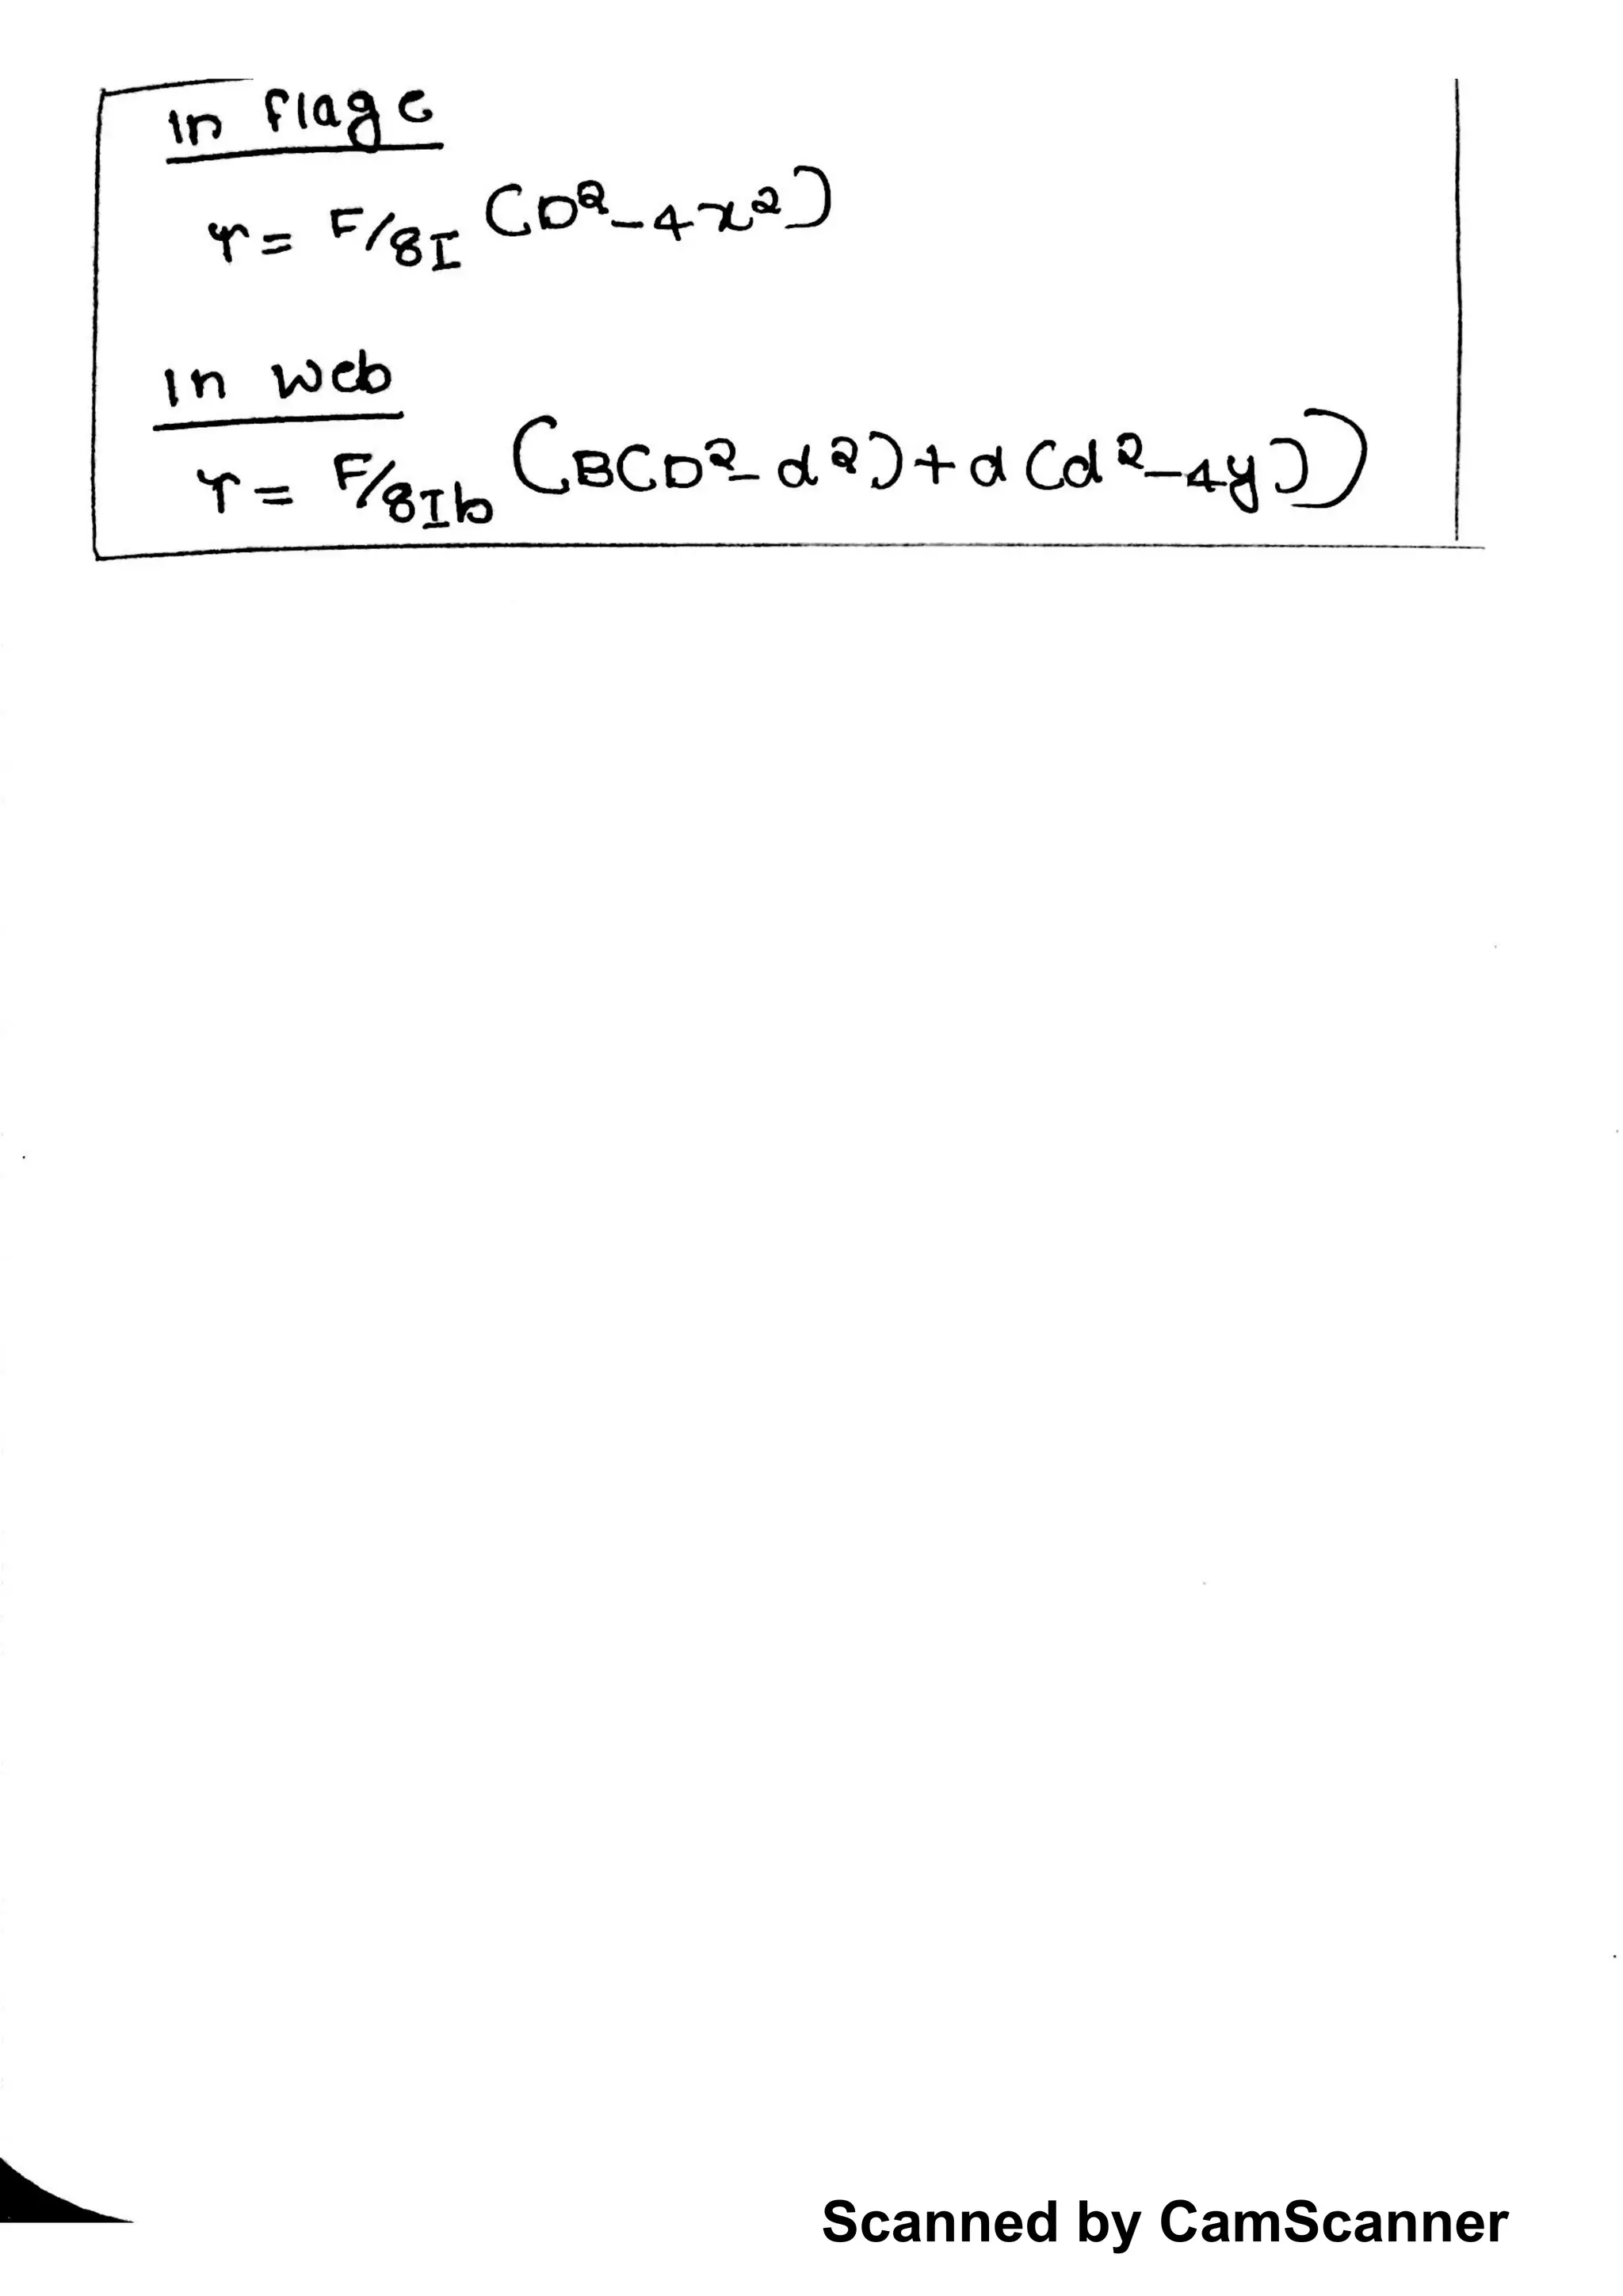 In flage
τ = F/8I (D²-4x²)
In web
τ = F/8Ib (B(D²-d²)+d(d²-4y))
Scanned by CamScanner